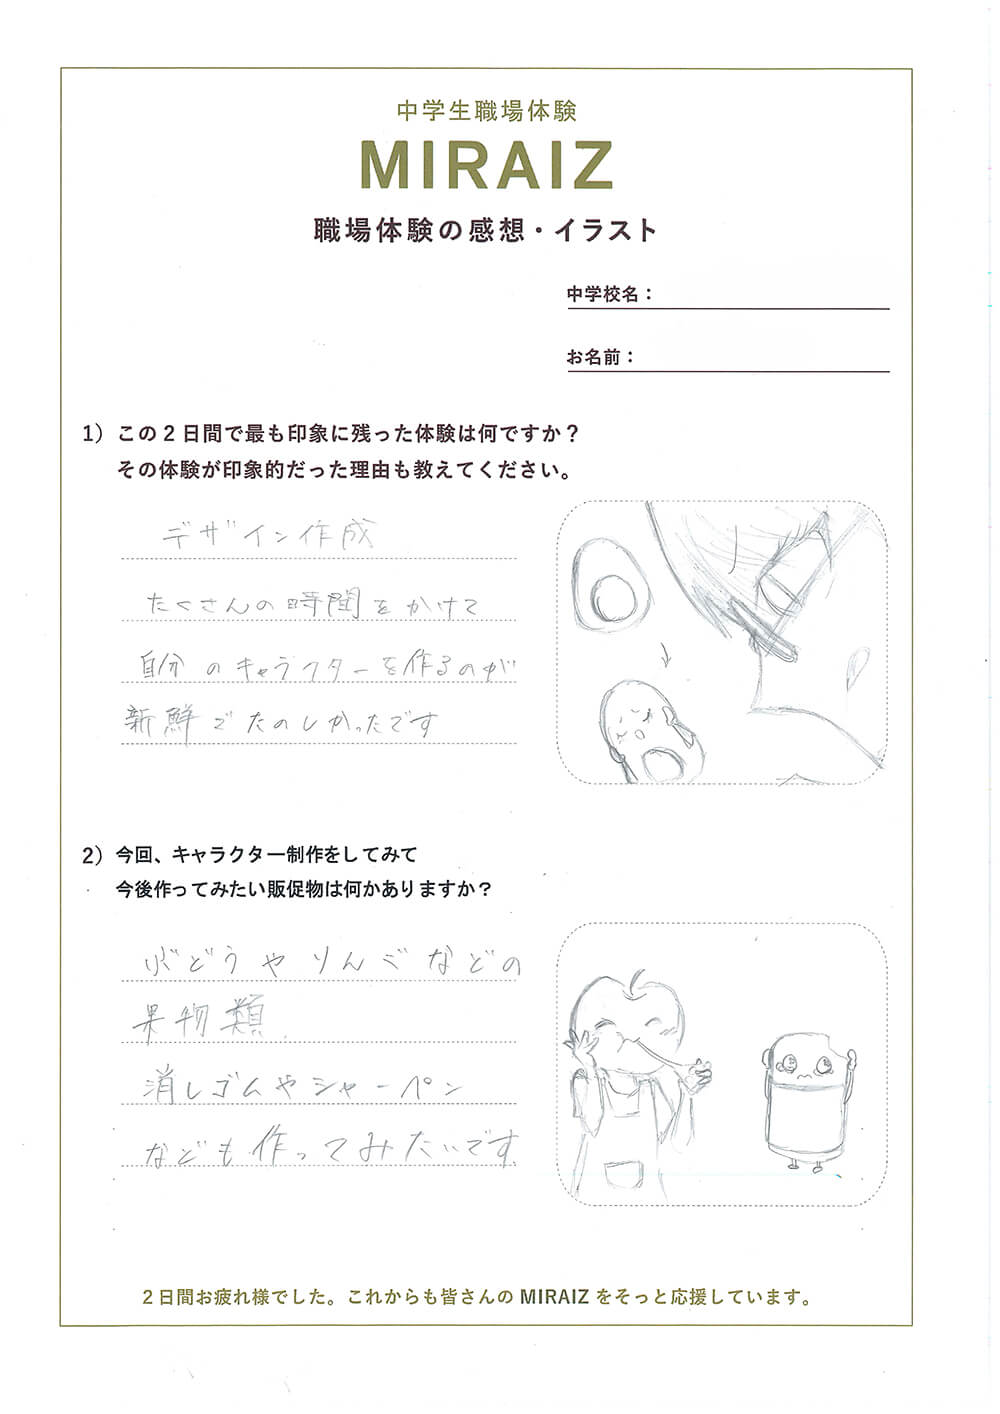 中学生職場体験
MIRAIZ
職場体験の感想・イラスト
中学校名：
お名前：
1）この2日間で最も印象に残った体験は何ですか？
その体験が印象的だった理由も教えてください。
デザイン作成
たくさんの時間をかけて
自分のキャラクターを作るのが
新鮮でたのしかったです
2）今回、キャラクター制作をしてみて
今後作ってみたい販促物は何かありますか？
ぶどうやりんごなどの
果物類
消しゴムやシャーペン
なども作ってみたいです
2日間お疲れ様でした。これからも皆さんの MIRAIZ をそっと応援しています。